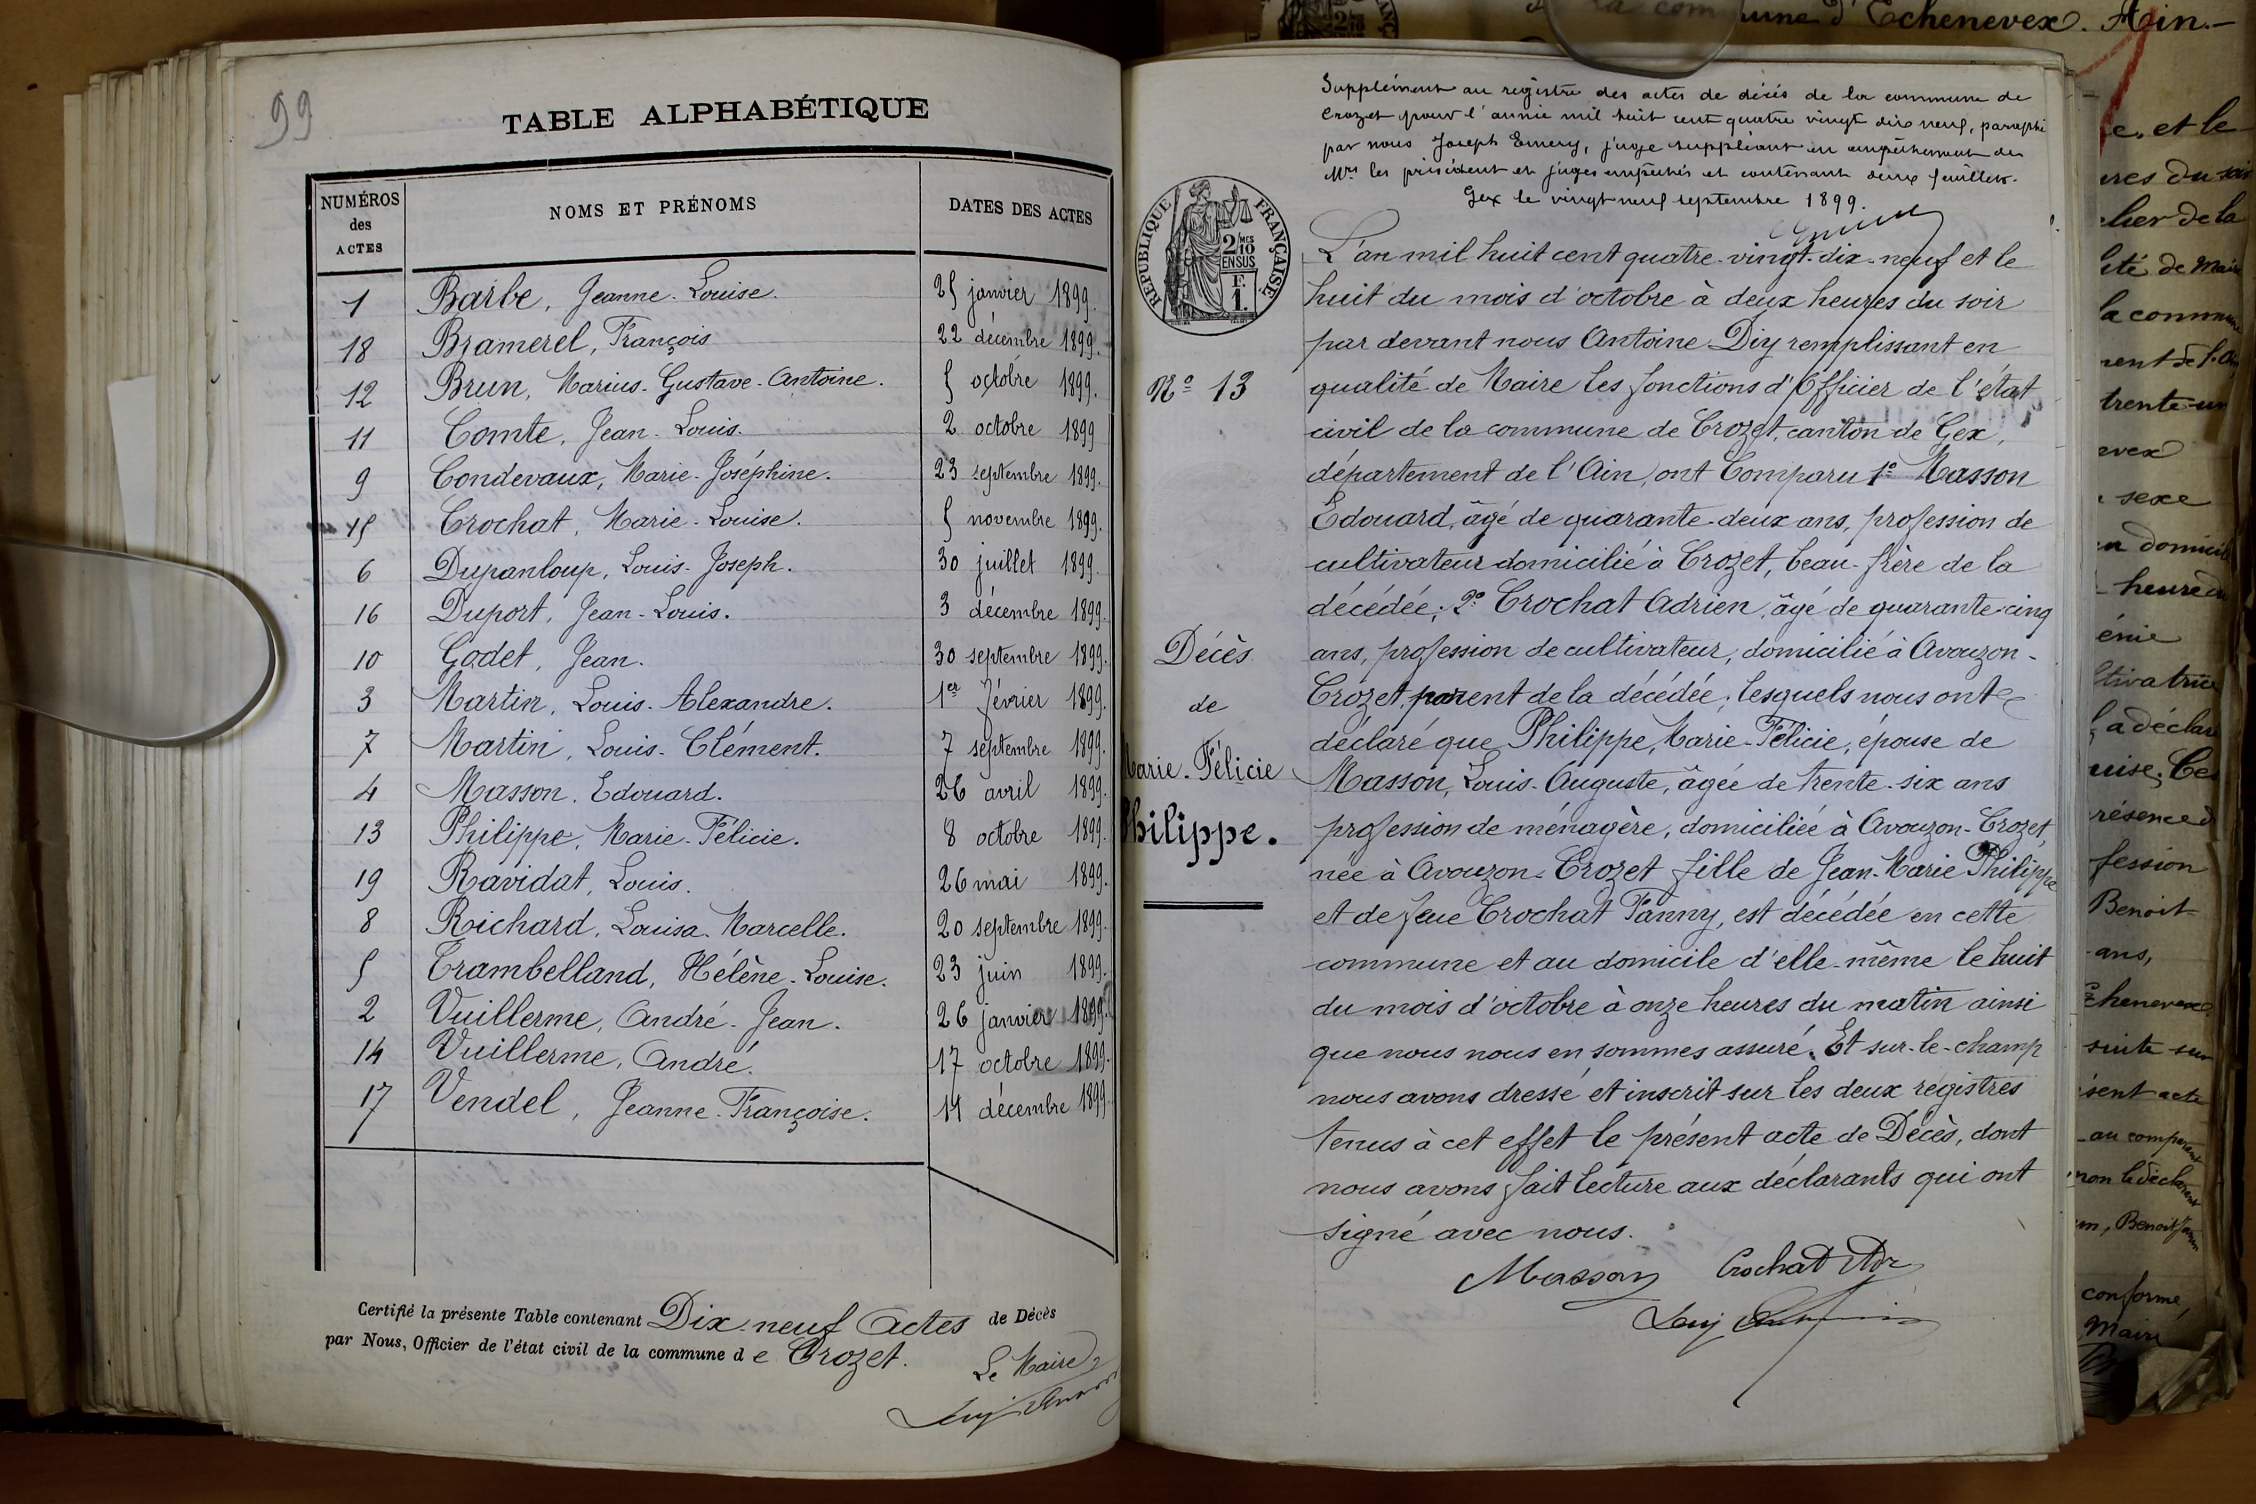 99
TABLE ALPHABÉTIQUE
NUMÉROS des ACTES
NOMS ET PRÉNOMS
DATES DES ACTES
1 Barbe, Jeanne-Louise. 25 janvier 1899.
18 Bramerel, François 22 décembre 1899.
12 Brun, Marius-Gustave-Antoine. 5 octobre 1899.
11 Comte, Jean-Louis. 2 octobre 1899
9 Condevaux, Marie-Joséphine. 23 septembre 1899.
15 Crochat, Marie-Louise. 5 novembre 1899.
6 Dupanloup, Louis-Joseph. 30 juillet 1899
16 Duport, Jean-Louis. 3 décembre 1899.
10 Godet, Jean. 30 septembre 1899.
3 Martin, Louis-Alexandre. 1er février 1899.
7 Martin, Louis-Clément. 7 septembre 1899.
4 Masson, Edouard. 26 avril 1899.
13 Philippe, Marie-Félicie. 8 octobre 1899.
19 Ravidat, Louis. 26 mai 1899.
8 Richard, Louisa-Marcelle. 20 septembre 1899.
5 Trambelland, Hélène-Louise. 23 juin 1899.
2 Vuillerme, André-Jean. 26 janvier 1899.
14 Vuillerme, André. 17 octobre 1899.
17 Vendel, Jeanne-Françoise. 14 décembre 1899
Certifié la présente Table contenant Dix-neuf Actes de Décès
par Nous, Officier de l'état civil de la commune de Crozet.
Le Maire
Supplément au registre des actes de décès de la commune de
Crozet pour l'année mil huit cent quatre vingt dix neuf, paraphé
par nous Joseph Emery, juge suppléant en empêchement de
Mrs les président et juges empêchés et contenant deux feuillets.
Gex le vingt neuf septembre 1899.
RÉPUBLIQUE FRANÇAISE
2/10 EN SUS
F. 1.
L'an mil huit cent quatre-vingt-dix-neuf et le
huit du mois d'octobre à deux heures du soir
par devant nous Antoine Diy remplissant en
N° 13
qualité de Maire les fonctions d'Officier de l'état
civil de la commune de Crozet, canton de Gex,
département de l'Ain, ont Comparu 1° Masson
Edouard, âgé de quarante-deux ans, profession de
cultivateur domicilié à Crozet, beau-frère de la
décédée; 2° Crochat Adrien, âgé de quarante-cinq
Décès
de
Marie-Félicie
Philippe.
ans, profession de cultivateur, domicilié à Avouzon-
Crozet, parent de la décédée; lesquels nous ont
déclaré que Philippe, Marie-Félicie, épouse de
Masson, Louis-Auguste, âgée de trente-six ans
profession de ménagère, domiciliée à Avouzon-Crozet,
née à Avouzon-Crozet fille de Jean-Marie Philippe
et de feue Crochat Fanny, est décédée en cette
commune et au domicile d'elle-même le huit
du mois d'octobre à onze heures du matin ainsi
que nous nous en sommes assuré. Et sur-le-champ
nous avons dressé et inscrit sur les deux registres
tenus à cet effet le présent acte de Décès, dont
nous avons fait lecture aux déclarants qui ont
signé avec nous.
Masson Crochat Adr
commune d'Echenevex. Ain.-
et le
lier de la
ité de Maire
la commune
trente-un
sexe
domicile
heure du
Benoit
ans,
Echenevex
suite sur
acte
conforme,
Maire